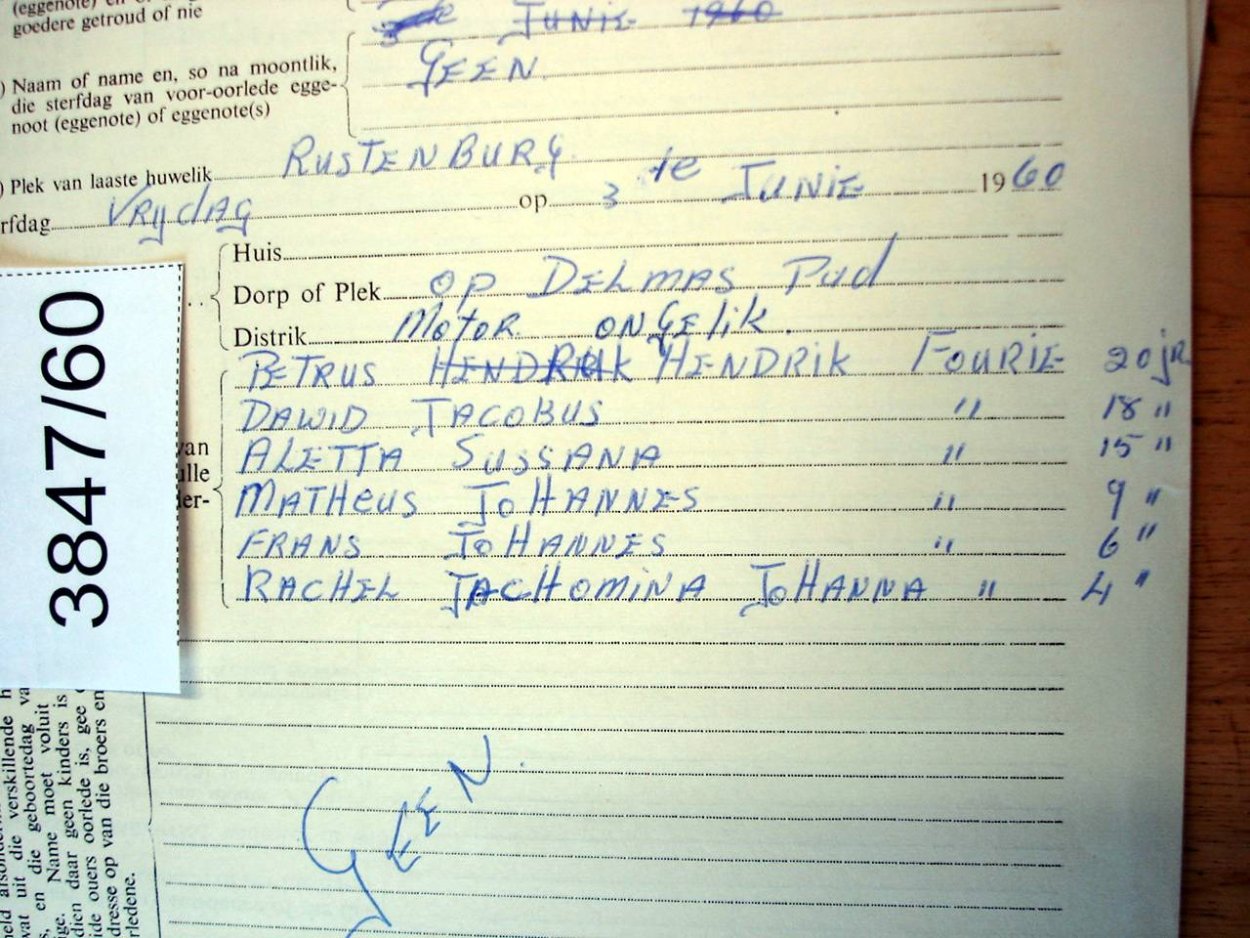 (eggenote) en
goedere getroud of nie
3 de JUNIE 1960
) Naam of name en, so na moontlik,
die sterfdag van voor-oorlede egge-
noot (eggenote) of eggenote(s)
GEEN
) Plek van laaste huwelik RUSTENBURG
rfdag Vrydag op 3 de JUNIE 1960
Huis
Dorp of Plek op DELMAS Pad
Distrik MOTOR ONGELIK.
PETRUS HENDRIK HENDRIK FOURIE 20 jr
DAWID JACOBUS " 18 "
van
ALETTA SUSSANA " 15 "
ulle
MATHEUS JOHANNES " 9 "
der-
FRANS JOHANNES " 6 "
RACHEL JACHOMINA JOHANNA " 4 "
3847/60
GEEN.
wat uit die verskillende h
s, en die geboortedag va
ige. Name moet voluit
dien daar geen kinders is
ide ouers oorlede is, gee
dresse op van die broers en
rledene.